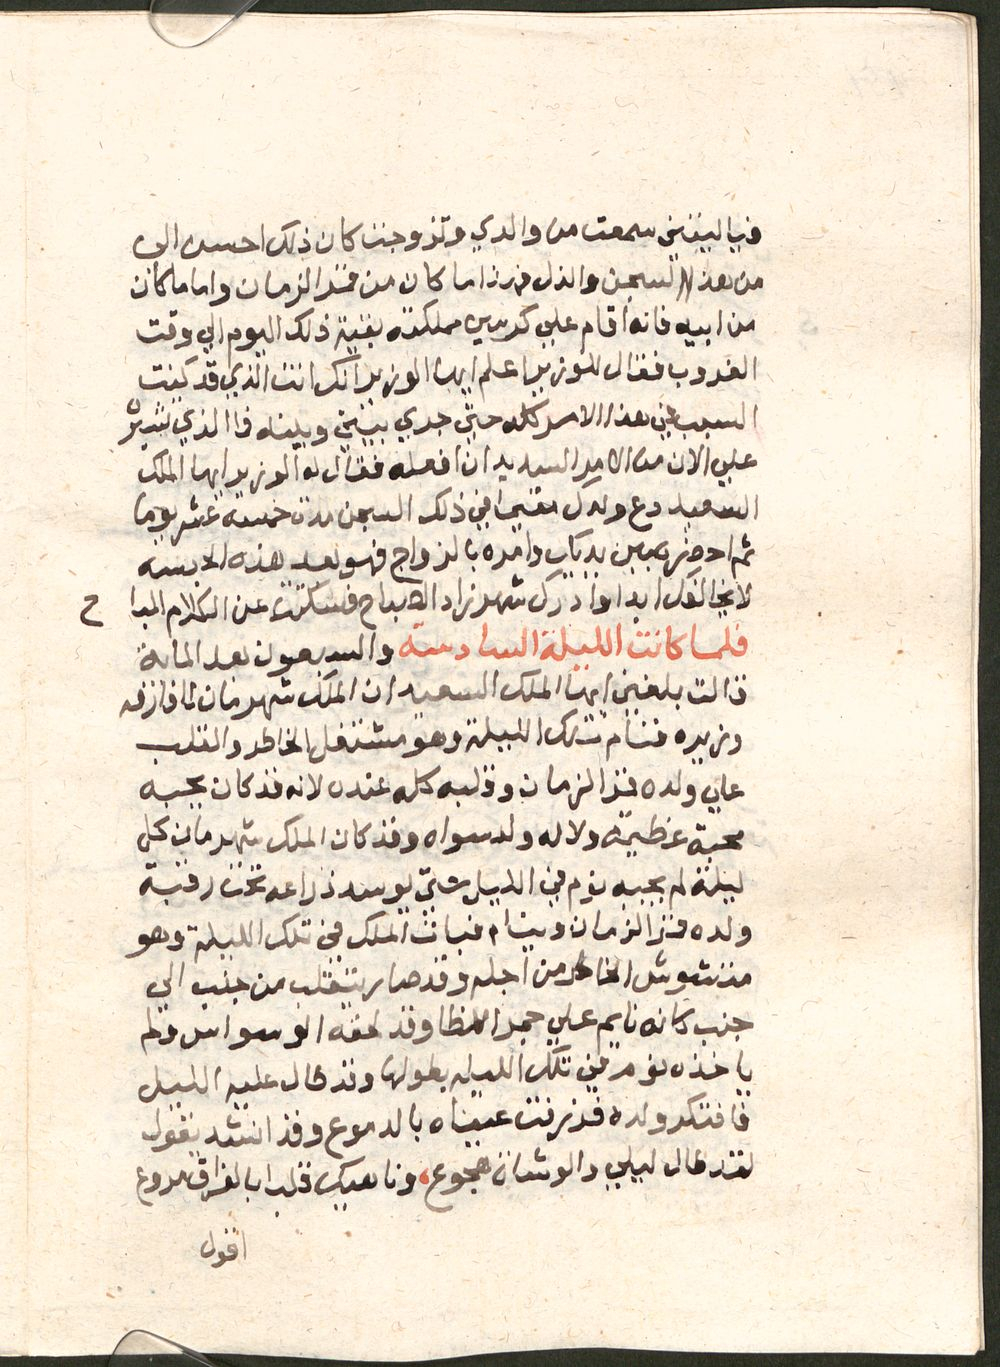 فياليتني سمعت من والدي وتزوجت كان ذلك احسن الي
من هذا السجن والذل فهذا ما كان من قمر الزمان واما ما كان
من ابيه فانه اقام علي كرسي مملكته بقية ذلك اليوم الي وقت
الغروب فقال للوزير اعلم ايها الوزير انك انت الذي قد كنت
السبب في هذا الامر كله حتي جري بيني وبينه فا الذي تشير
علي الان من الامر السديد ان افعله فقال له الوزير ايها الملك
السعيد دع ولدك مقيما في ذلك السجن مدة خمسة عشر يوما
ثم احضره بين يديك وامره بالزواج فهو بعد هذه الحبسه
لا يخالفك ابدا وادرك شهرزاد الصباح فسكتت عن الكلام المبا
ح
فلما كانت الليلة السادسة والسبعون بعد الماية
قالت بلغني ايها الملك السعيد ان الملك شهرمان لما فارقه
وزيره فنام تلك الليلة وهو مشتغل الخاطر والقلب
علي ولده قمر الزمان وقلبه كله عنده لانه قد كان يحبه
محبة عظيمة ولا له ولد سواه وقد كان الملك شهرمان كل
ليلة لم يجيه نوم في الليل حتي يوسد ذراعه تحت رقبة
ولده قمر الزمان وينام فبات الملك في تلك الليلة وهو
متشوش الخاطر من اجله وقد صار يتقلب من جنب الي
جنب كانه نايم علي جمر اللظا وقد لحقه الوسواس ولم
ياخذه نوم في تلك الليله بطولها وقد طال عليه الليل
فافتكر ولده قد زرفت عيناه بالدموع وقد انشد يقول
لقد طال ليلي والوشاة هجوع، ونا هيك قلبا بالفراق مروع
اقول